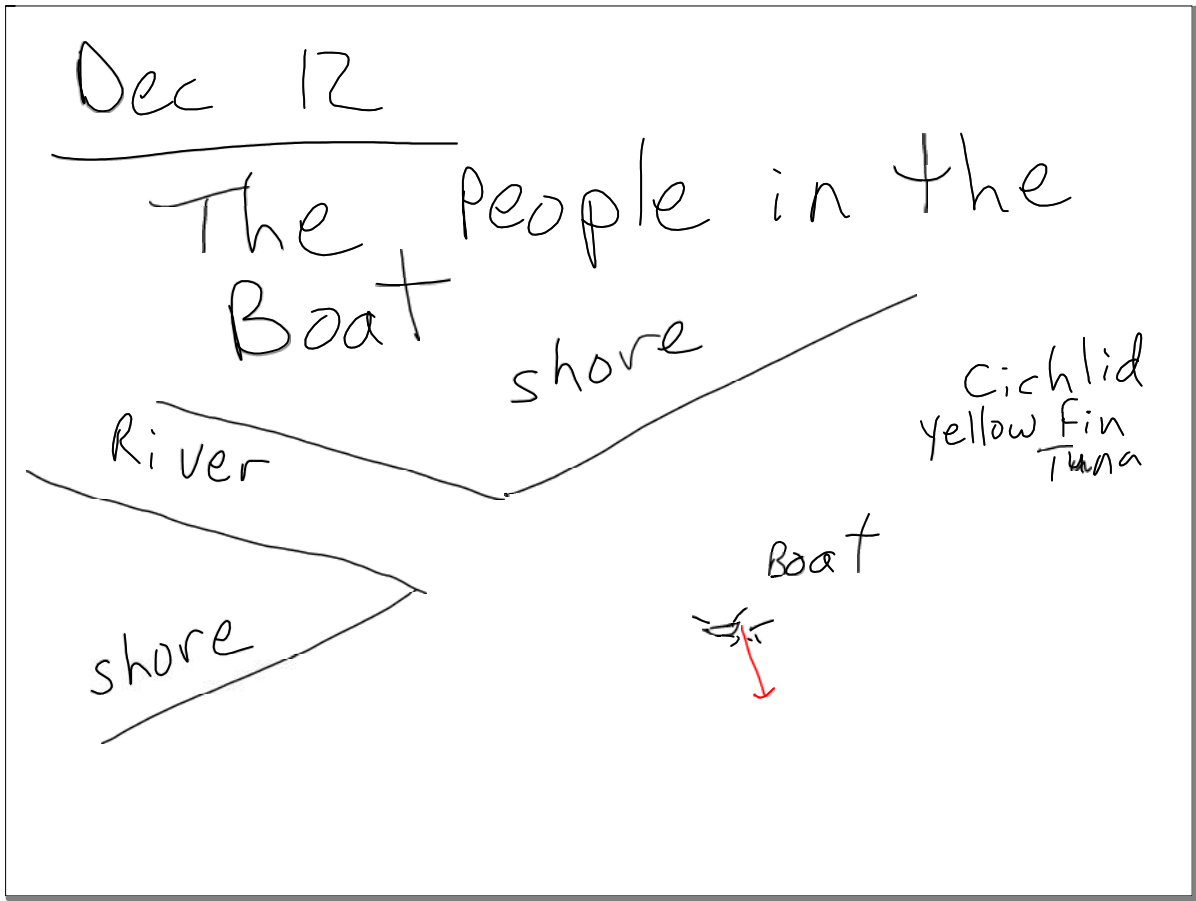 Dec 12
The People in the
Boat
shore
River
Cichlid
Yellow Fin
Tuna
Boat
shore